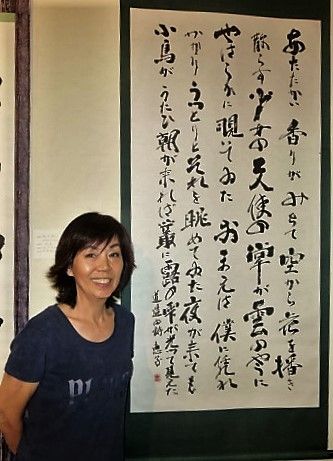 あたたかい香りがみちて空から花を播き
散らす少女の天使の掌が雲のやうに
やはらかに覗いてゐたおまへは僕に凭れ
かかりうつとりとそれを眺めてゐた夜が来ても
小鳥がうたひ朝が来れば叢に露の雫が光つて見えた
道造の詩